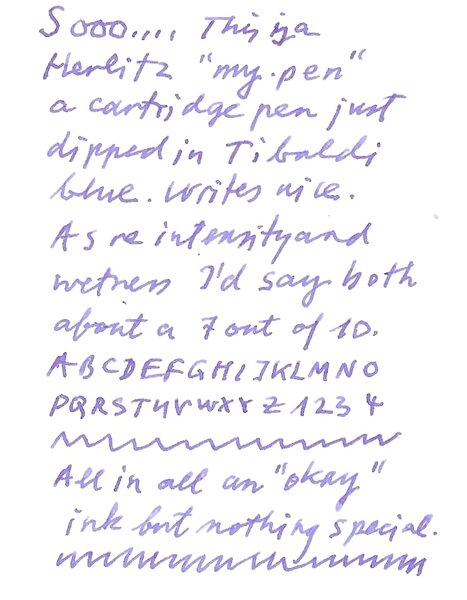 Sooo.... This is a
Herlitz "my.pen"
a cartridge pen just
dipped in Tibaldi
blue. Writes nice.
As re intensity and
wetness I'd say both
about a 7 out of 10.
ABCDEFGHIJKLMNO
PQRSTUVWXYZ 1234
All in all an "okay"
ink but nothing special.